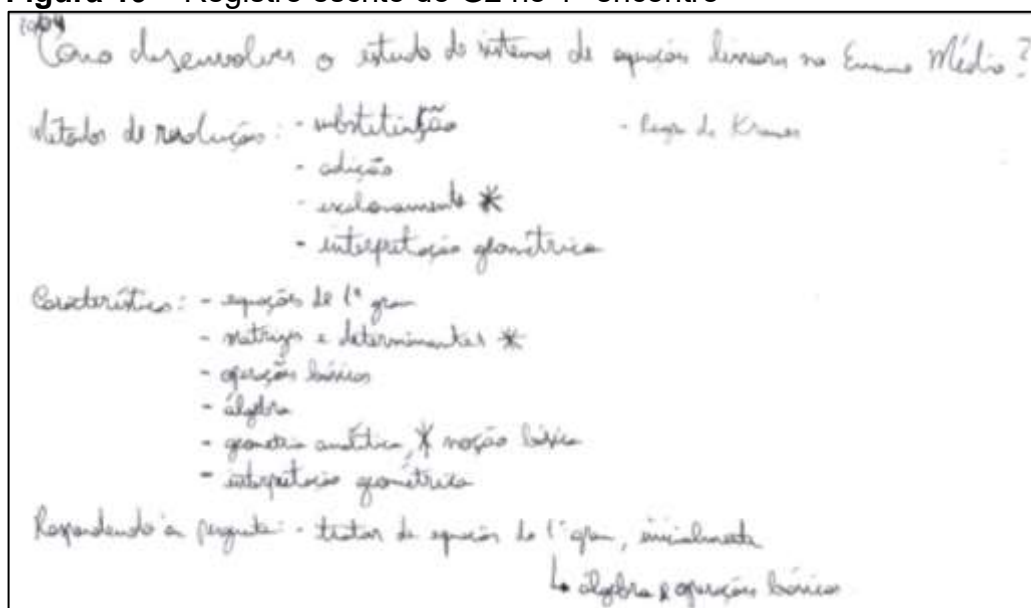 Registro escrito do G2 no 1º encontro
Como desenvolver o estudo de sistemas de equações lineares no Ensino Médio?
Métodos de resolução: - substituição - Regra de Kramer
- adição
- escalonamento *
- interpretação geométrica
Características: - equações de 1º grau
- matrizes e determinantes *
- operações básicas
- álgebra
- geometria analítica, * noção básica
- interpretação geométrica
Respondendo a pergunta: - tratar de equações do 1º grau, inicialmente
↳ álgebra e operações básicas